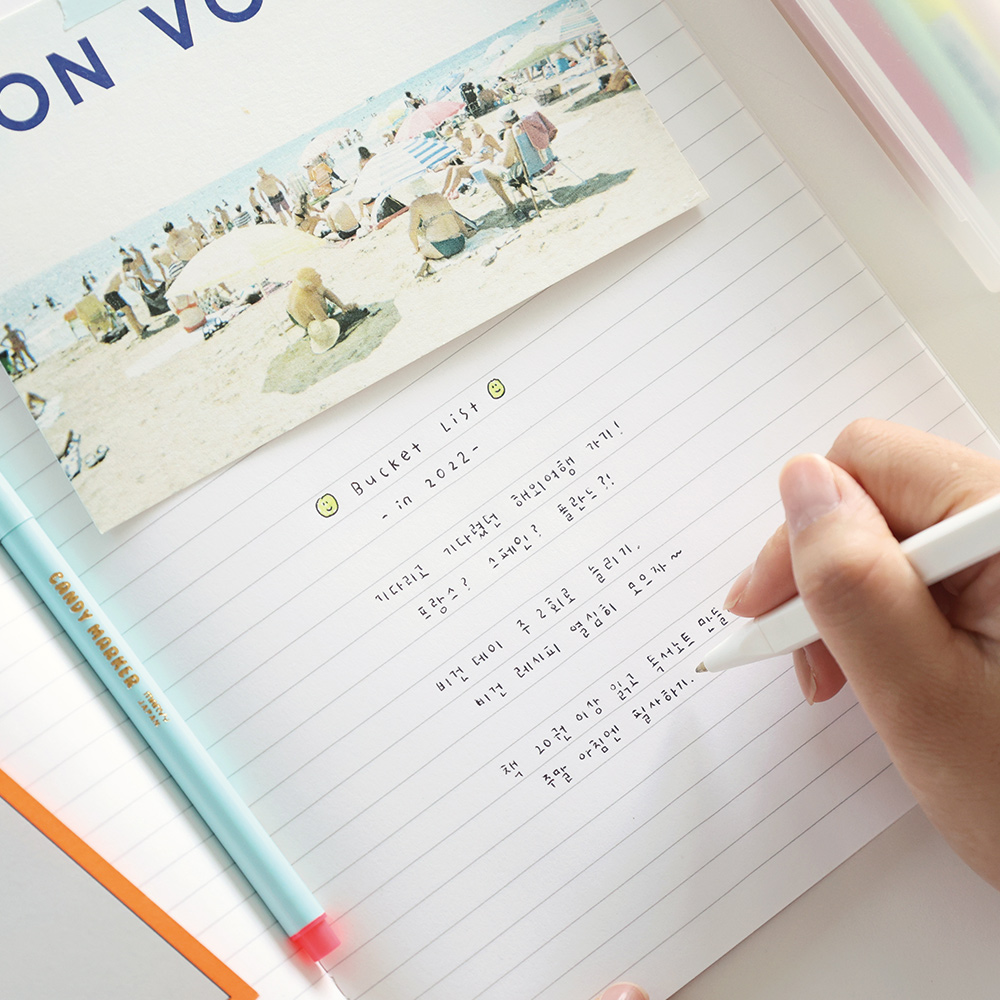 ON VO
Bucket List
- in 2022 -
기다리고 기다렸던 해외여행 가기!
프랑스? 스페인? 폴란드?!
비건 데이 주 2회로 늘리기.
비건 레시피 열심히 모으자~
책 20권 이상 읽고 독서노트 만들
주말 아침엔 필사하기.
CANDY MARKER
JAPAN